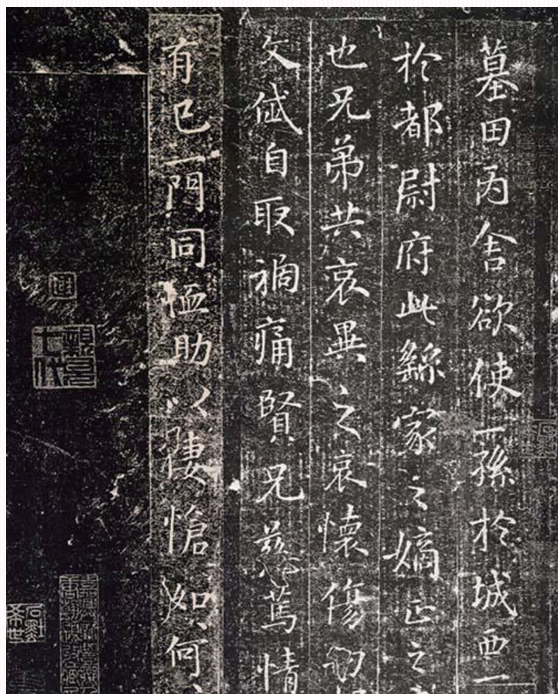 墓田丙舍欲使一孫於城西一
於都尉府此繇家之嫡正之
也兄弟共哀異之哀懷傷切
文岱自取禍痛賢兄慈篤情
有已一門同恤助以悽愴如何